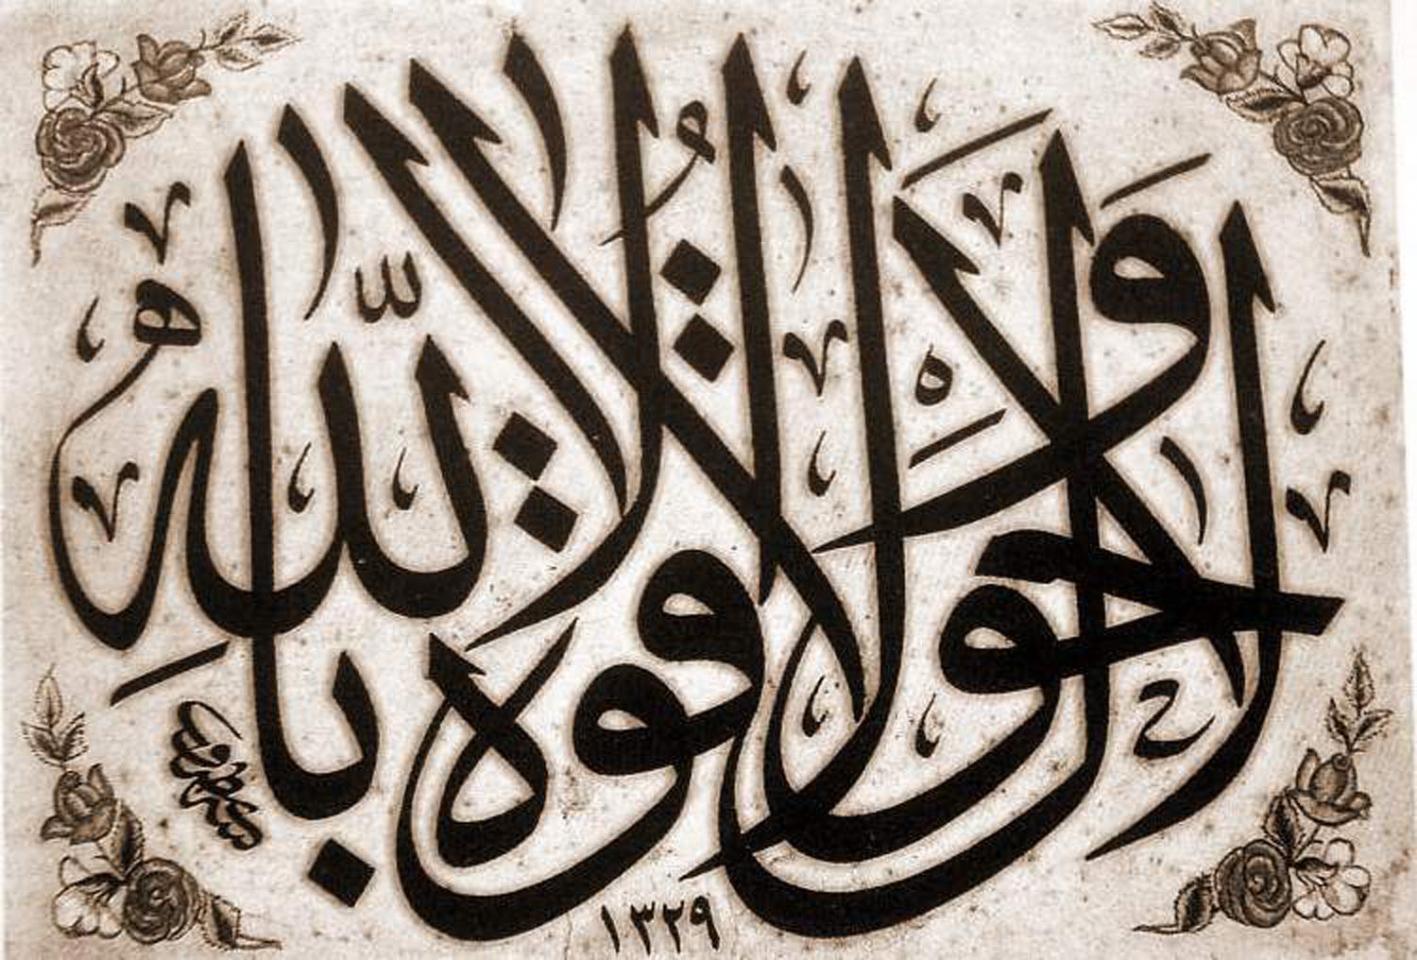 لا حول ولا قوة الا بالله
١٣٢٩